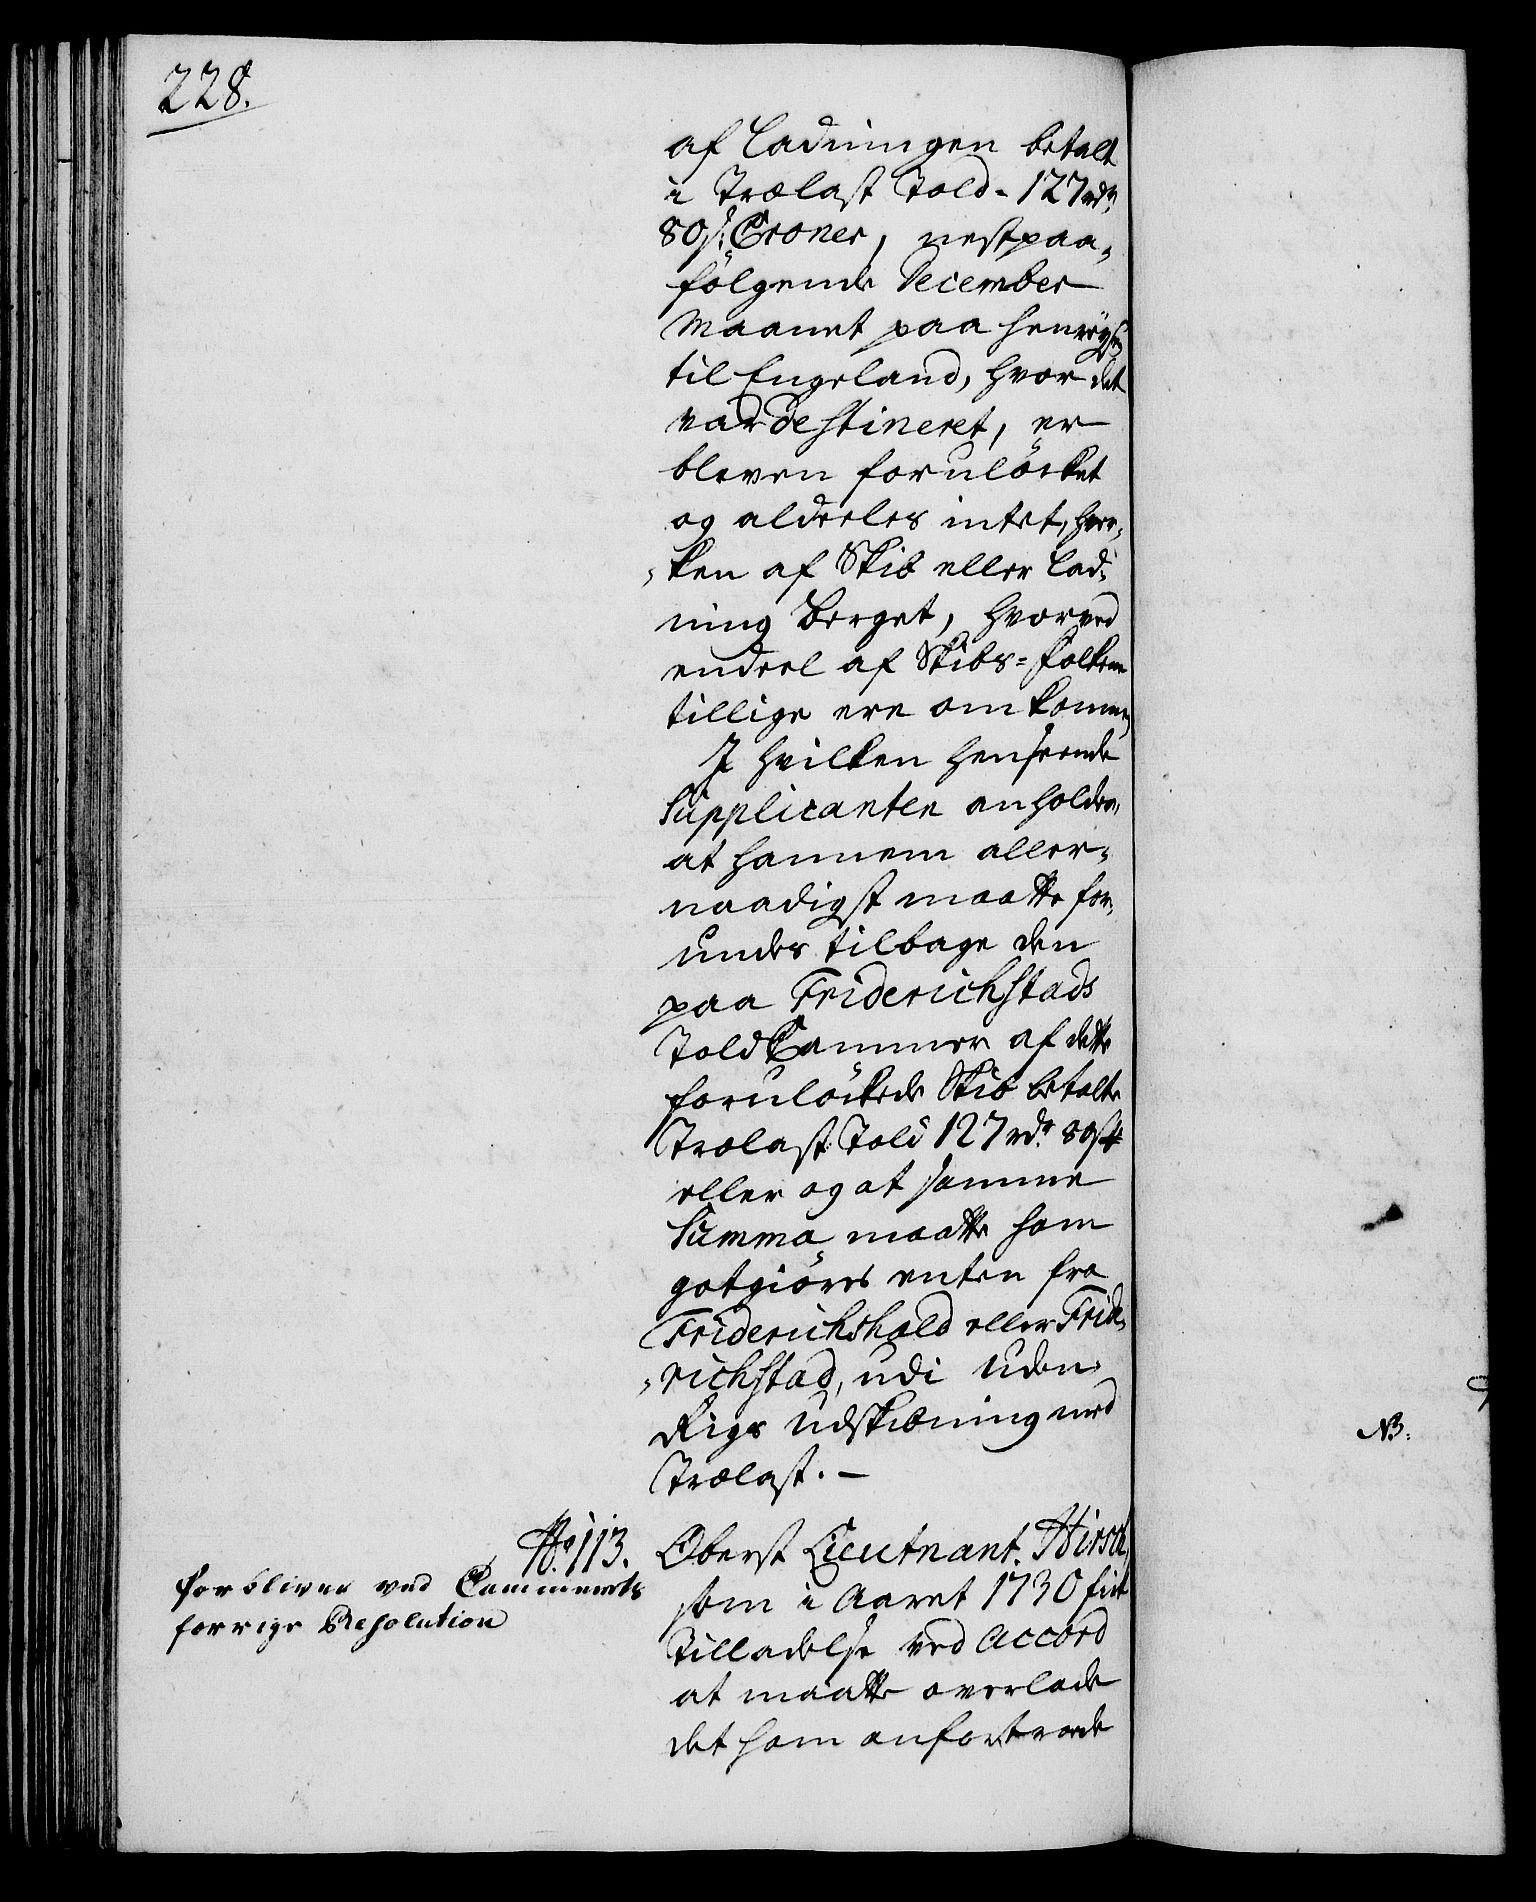 228.
af Ladningen betalt
i Trælast Told - 127 rdr
80 s: Croner, nestpaa-
følgende December
Maanet paa henreysen
til Engeland, hvor det
var destineret, er
bleven forulöcket
og aldeeles intet, hver-
-ken af Skib eller Lad-
ning berget, hvorved
endeel af Skibs=folkene
tillige ere omkommen,
I hvilken henseende
Supplicanten anholder,
at hannem aller-
naadigst maatte for-
undes tilbage den
paa Friderichstads
Toldkammer af dette
forulöckede Skib betalte
Trælast Told 127 rdr 80 s
eller og at samme
Summa maatte ham
gotgiöres enten fra
Friderichshald eller Fride-
-richstad, udi Uden-
Rigs Udskibning med
Trælast. —
No 113.
Oberst Lieutnant Hirsch,
som i Aaret 1730 fick
Tilladelse ved Accord
at maatte overlade
det ham anfortroede
forbliver ved Cammerets
forrige Resolution
NB: